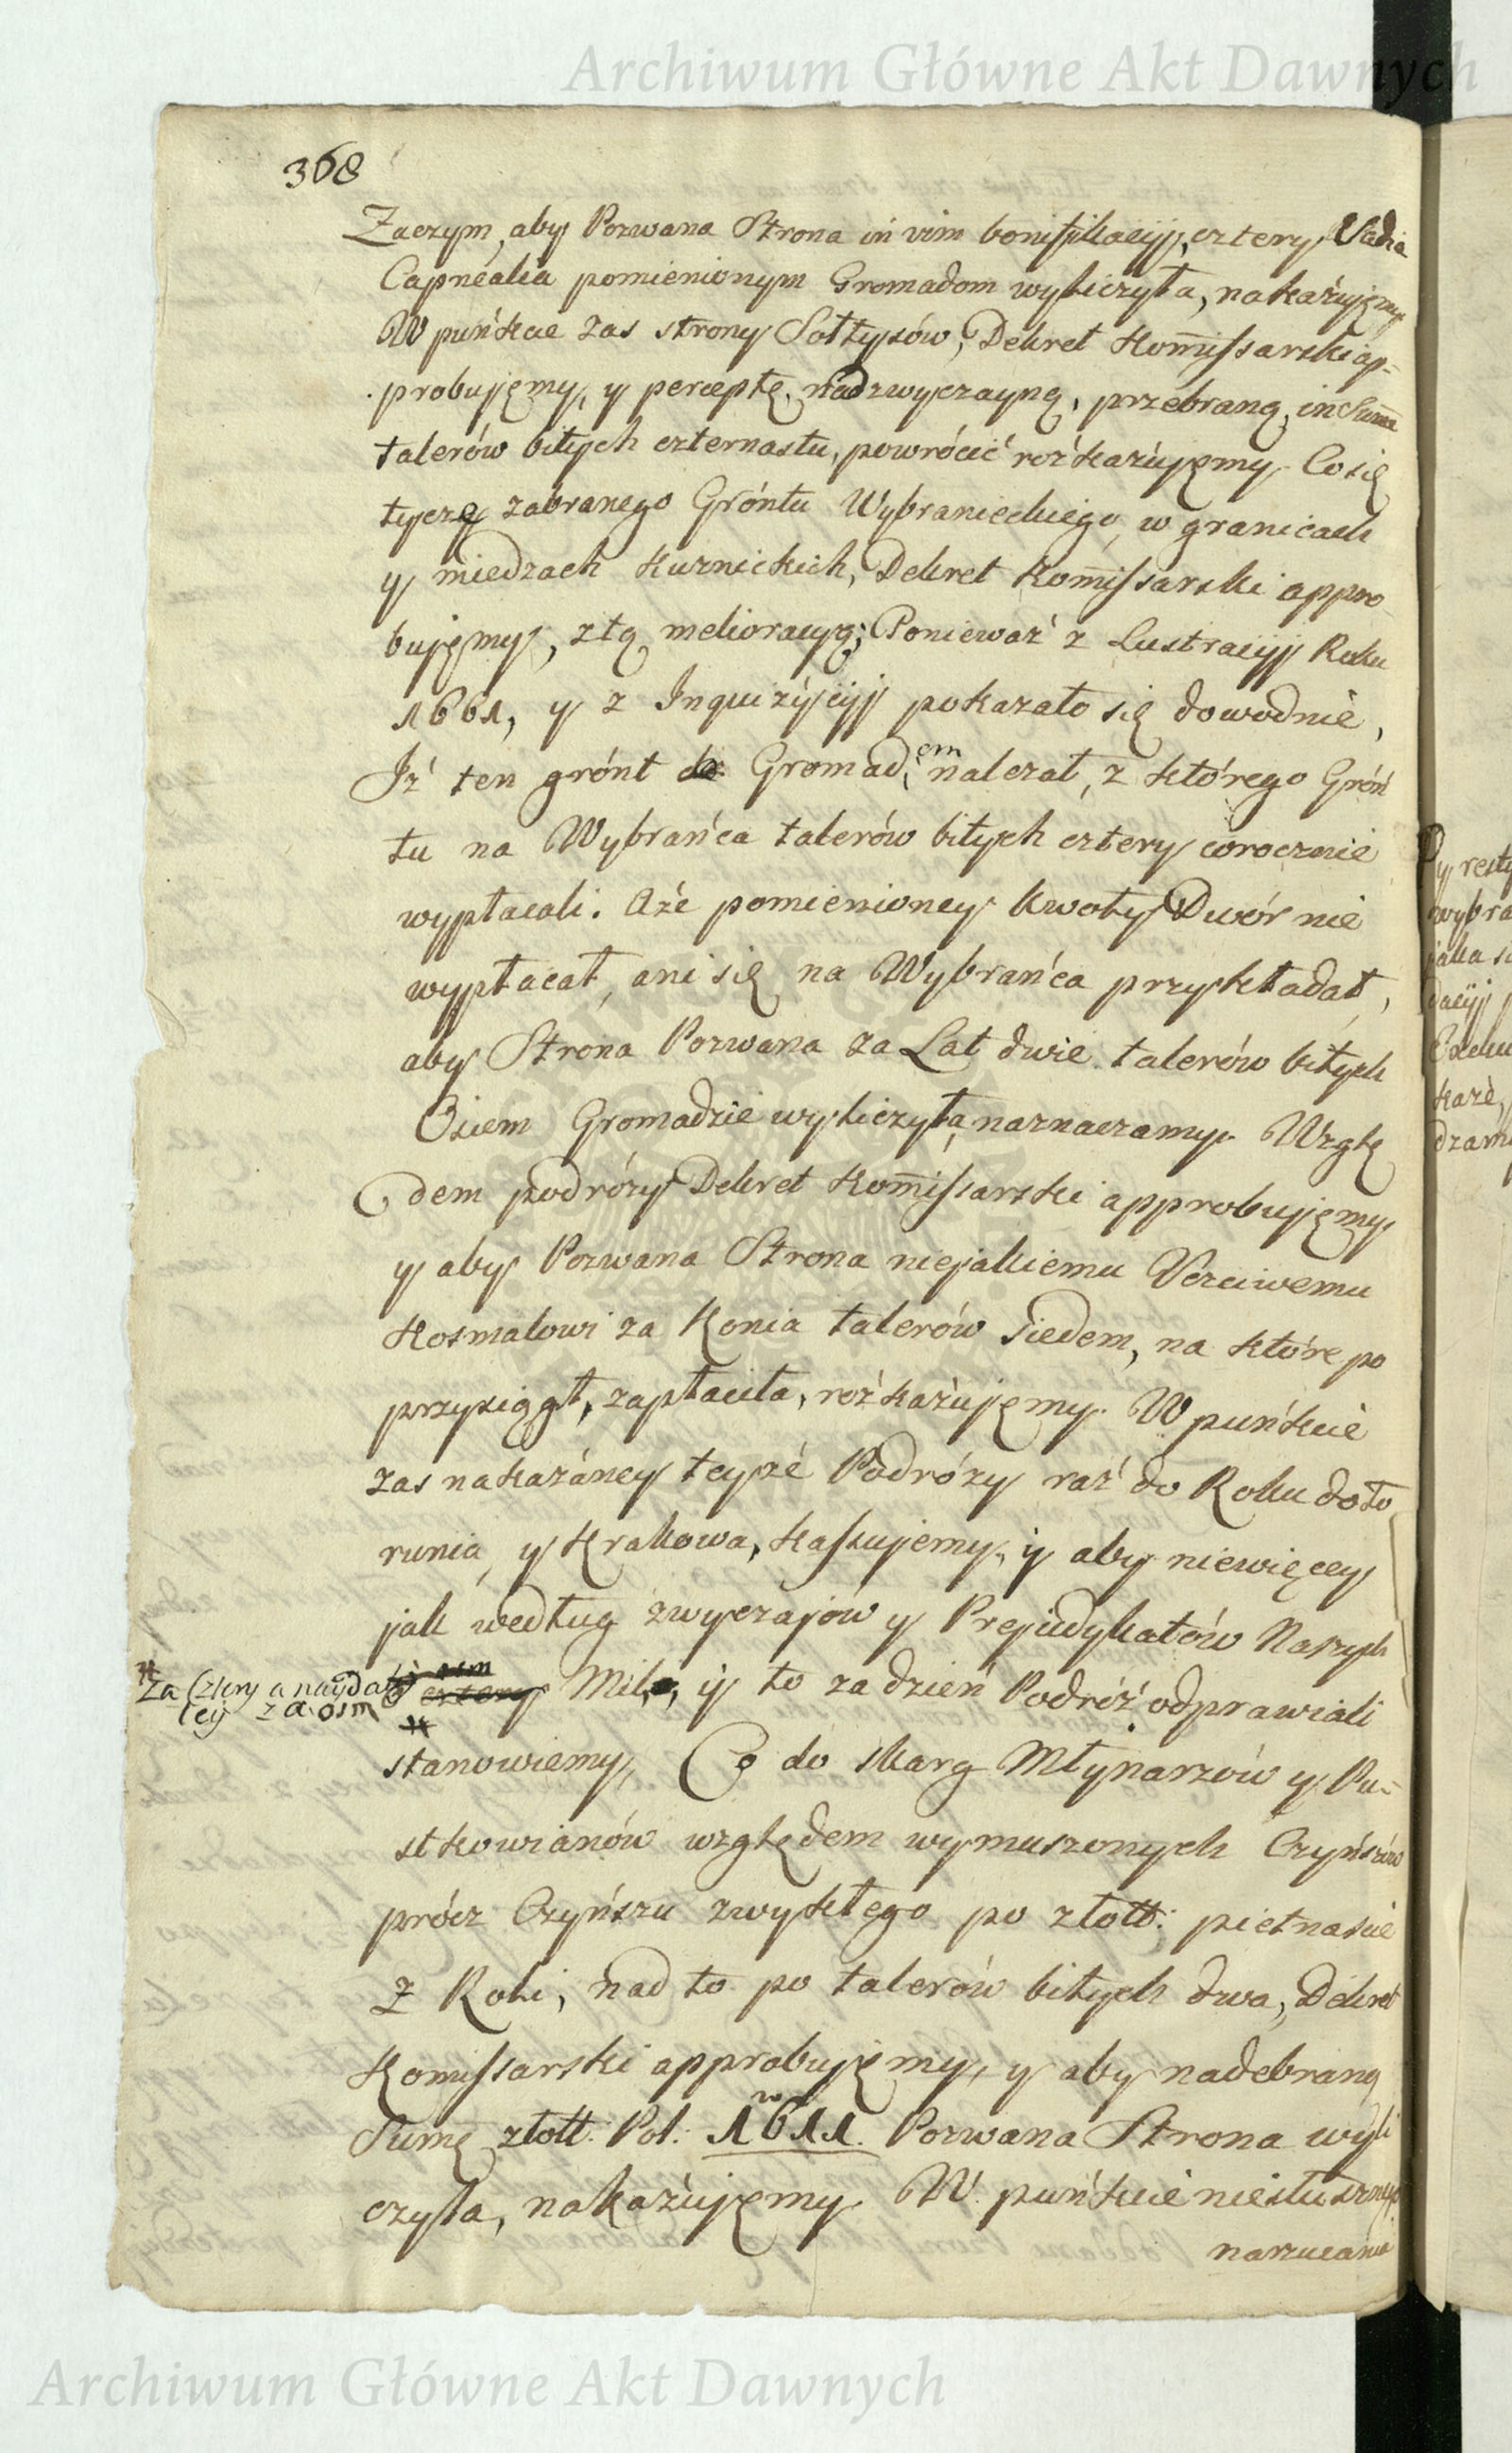 Archiwum Główne Akt Dawnych
368
Zaczym, aby Pozwana Strona in vim bonifikacyj, cztery Vadia
Capnealia pomienionym Gromadom wyliczyła, nakażujęmy
W puńkcie zas strony Sołtysów, Dekret Kom̃issarski ap-
probujęmy, y perceptę nadzwyczayną, przebraną, in Sum̃a
talerów bitych czternastu, powrócić rozkażujęmy. Co się
tyczę zabranego Gróntu Wybranieckiego, w granicach
y miedzach Kuznickich, Dekret Kom̃issarski appro
bujęmy, z tą melioracyą; Ponieważ z Lustracyj Roku
1661, y z Inquizycyj pokazało się dowodnie,
Iż ten grónt do Gromad,em nalezał, z którego Grón
tu na Wybrańca talerów bitych cztery corocznie
wypłacali. Aże pomienioney Kwoty Dwór nie
wypłacał, ani się na Wybrańca przykładał,
aby Strona Pozwana za Lat dwie talerów bitych
Osiem Gromadzie wyliczyła, naznaczamy. Wzglę
dem podróży Dekret Kom̃issarski approbujęmy
y aby Pozwana Strona niejakiemu Uczciwemu
Kosmalowi za Konia talerów siedem, na które po
przysiągł, zapłaciła, rozkażujęmy. W puńkcie
zas nakazáney teyże Podróży raż do Roku do To
runia, y Krakowa, kassujemy, y aby niewięcey
jak według zwyczajów y Prejudykatów Naszych
osm
cztery Mil, y to za dzień Podróż odprawiali
# Za Cztery a naydaley
za osm
#
stanowiemy, Co do skarg Młynarzów y Pu-
stkowianów względem wymuszonych Czyńszów
prócz Czyńszu zwykłego po złott: pietnascie
z Roli, nad to po talerów bitych dwa, Dekret
Komissarski approbujęmy, y aby nadebraną
Sumę złott: Pol: 1611. Pozwana Strona wyli
czyła, nakażujęmy. W puńkcie niesłusznego
narzucania
Archiwum Główne Akt Dawnych